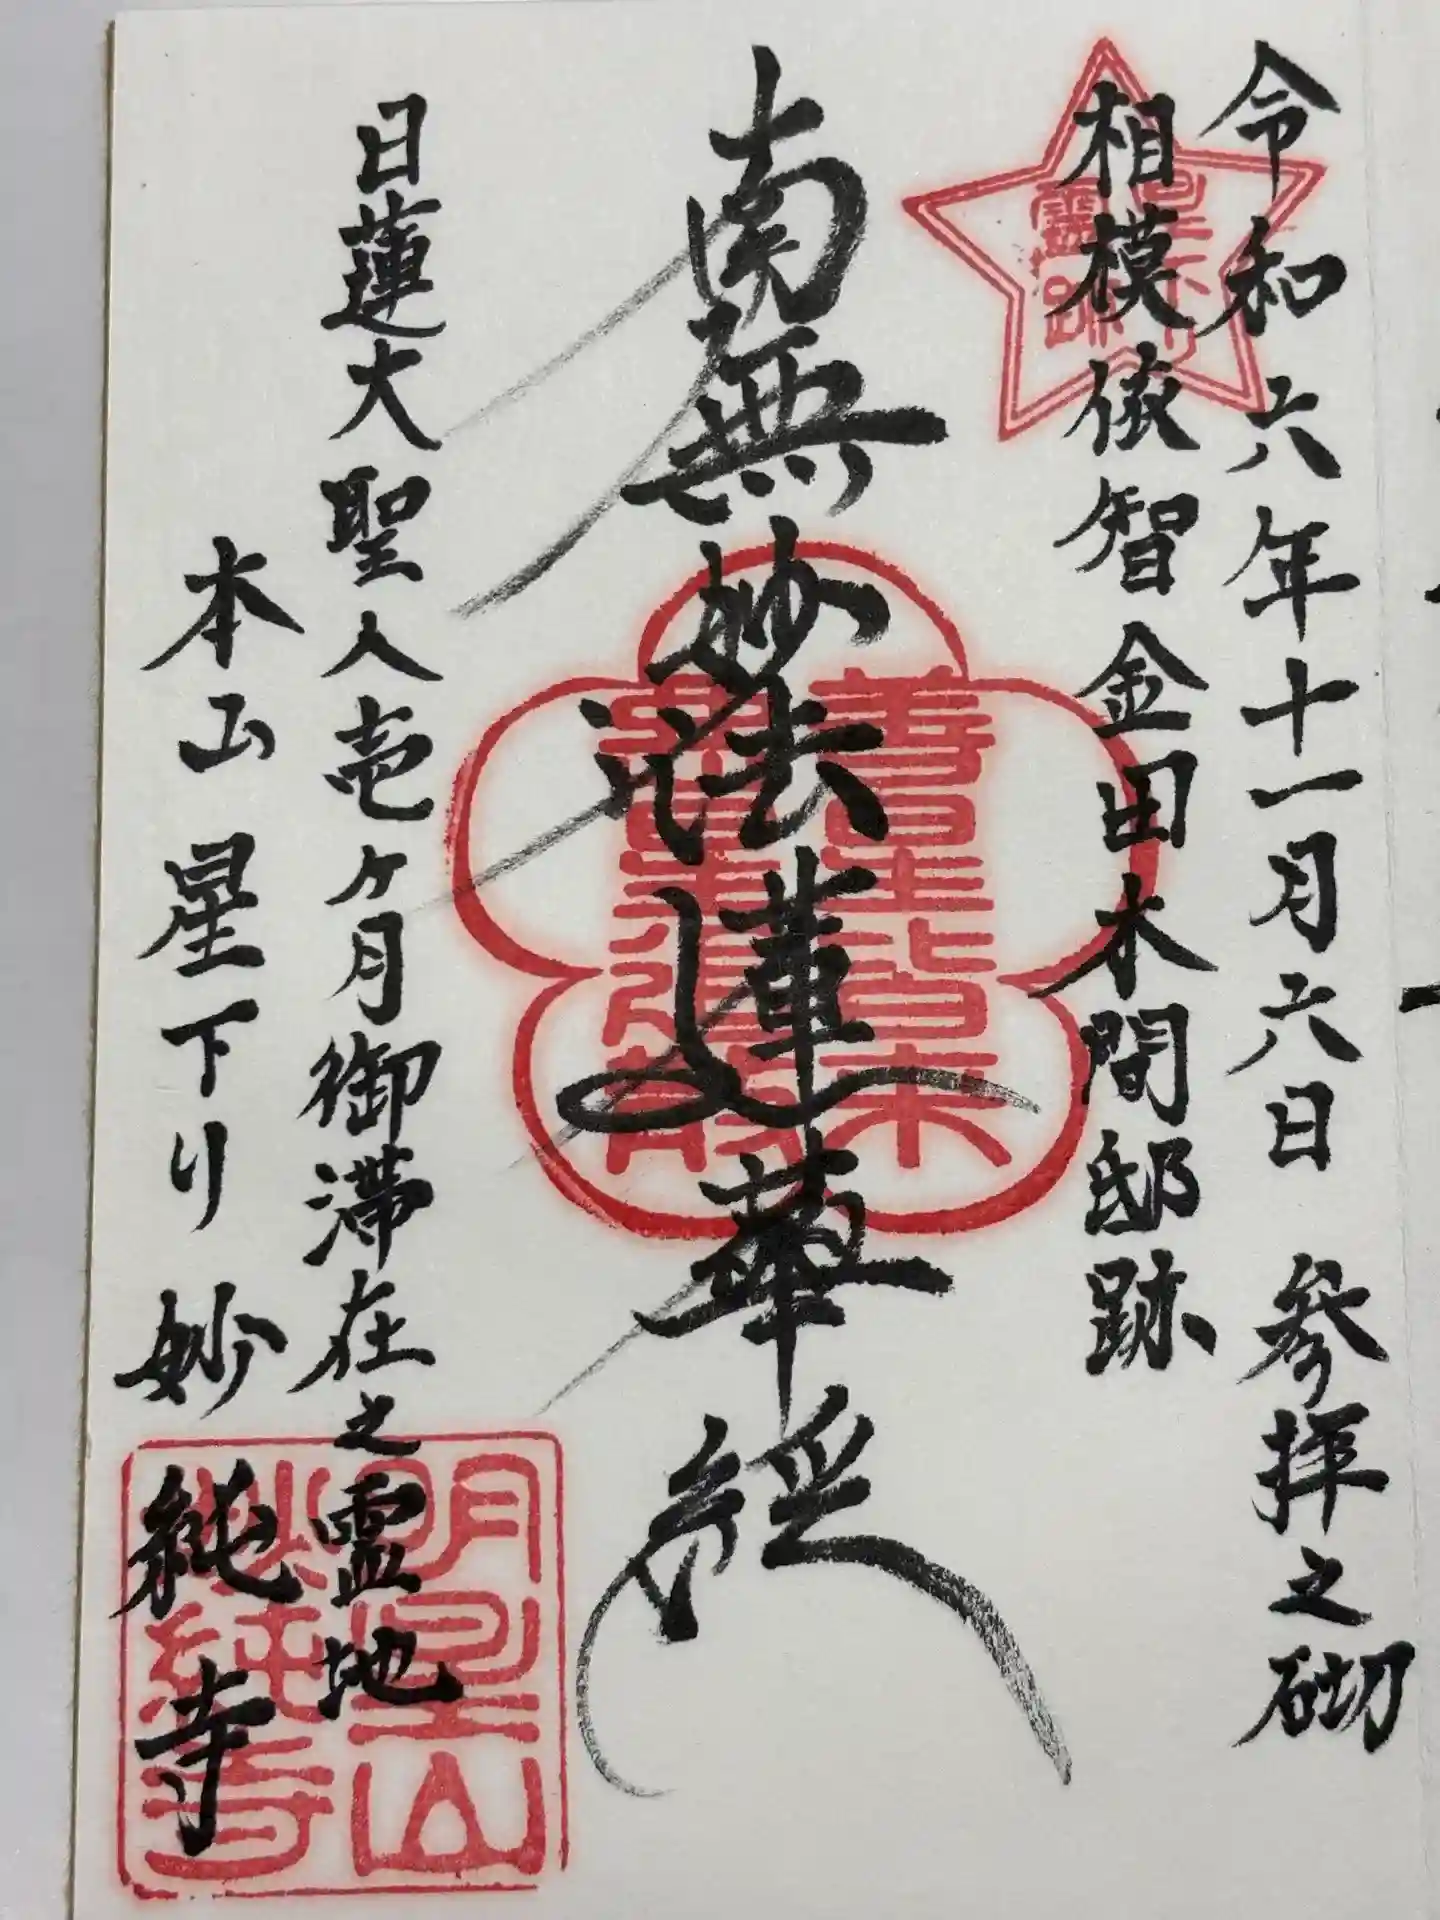 令和六年十一月六日 参拝之砌
相模依智金田本間邸跡
星下り
霊跡
南無妙法蓮華経
日蓮大聖人壱ヶ月御滞在之霊地
本山 星下り 妙純寺
明星山
妙純寺